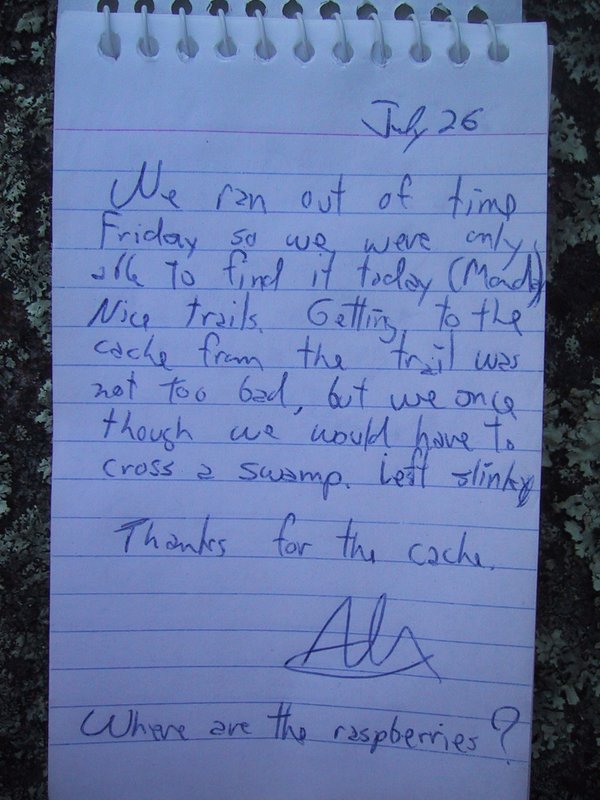 July 26
We ran out of time
Friday so we were only
able to find it today (Monday)
Nice trails. Getting to the
cache from the trail was
not too bad, but we once
though we would have to
cross a swamp. Left slinky
Thanks for the cache.
Alex
Where are the raspberries?